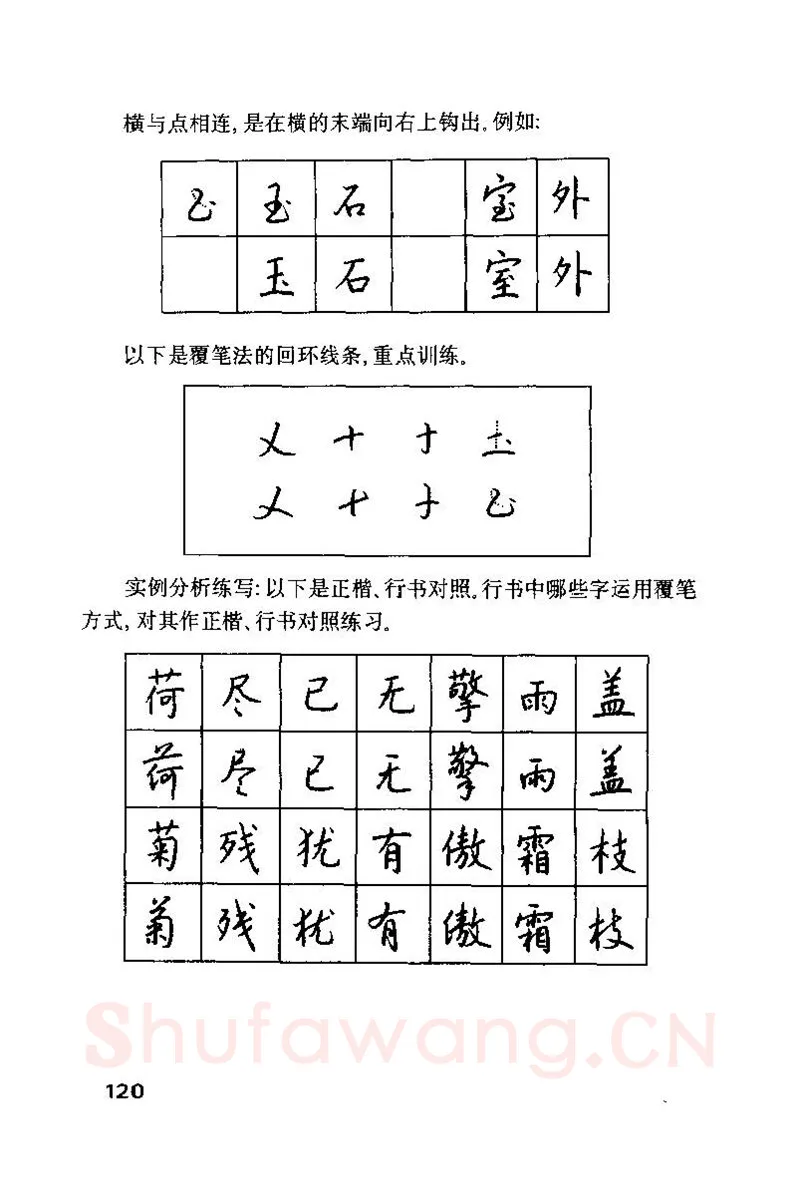 横与点相连,是在横的末端向右上钩出。例如:
玉 石 室 外
玉 石 室 外
以下是覆笔法的回环线条,重点训练。
实例分析练写:以下是正楷、行书对照。行书中哪些字运用覆笔
方式,对其作正楷、行书对照练习。
荷 尽 已 无 擎 雨 盖
荷 尽 已 无 擎 雨 盖
菊 残 犹 有 傲 霜 枝
菊 残 犹 有 傲 霜 枝
Shufawang.CN
120